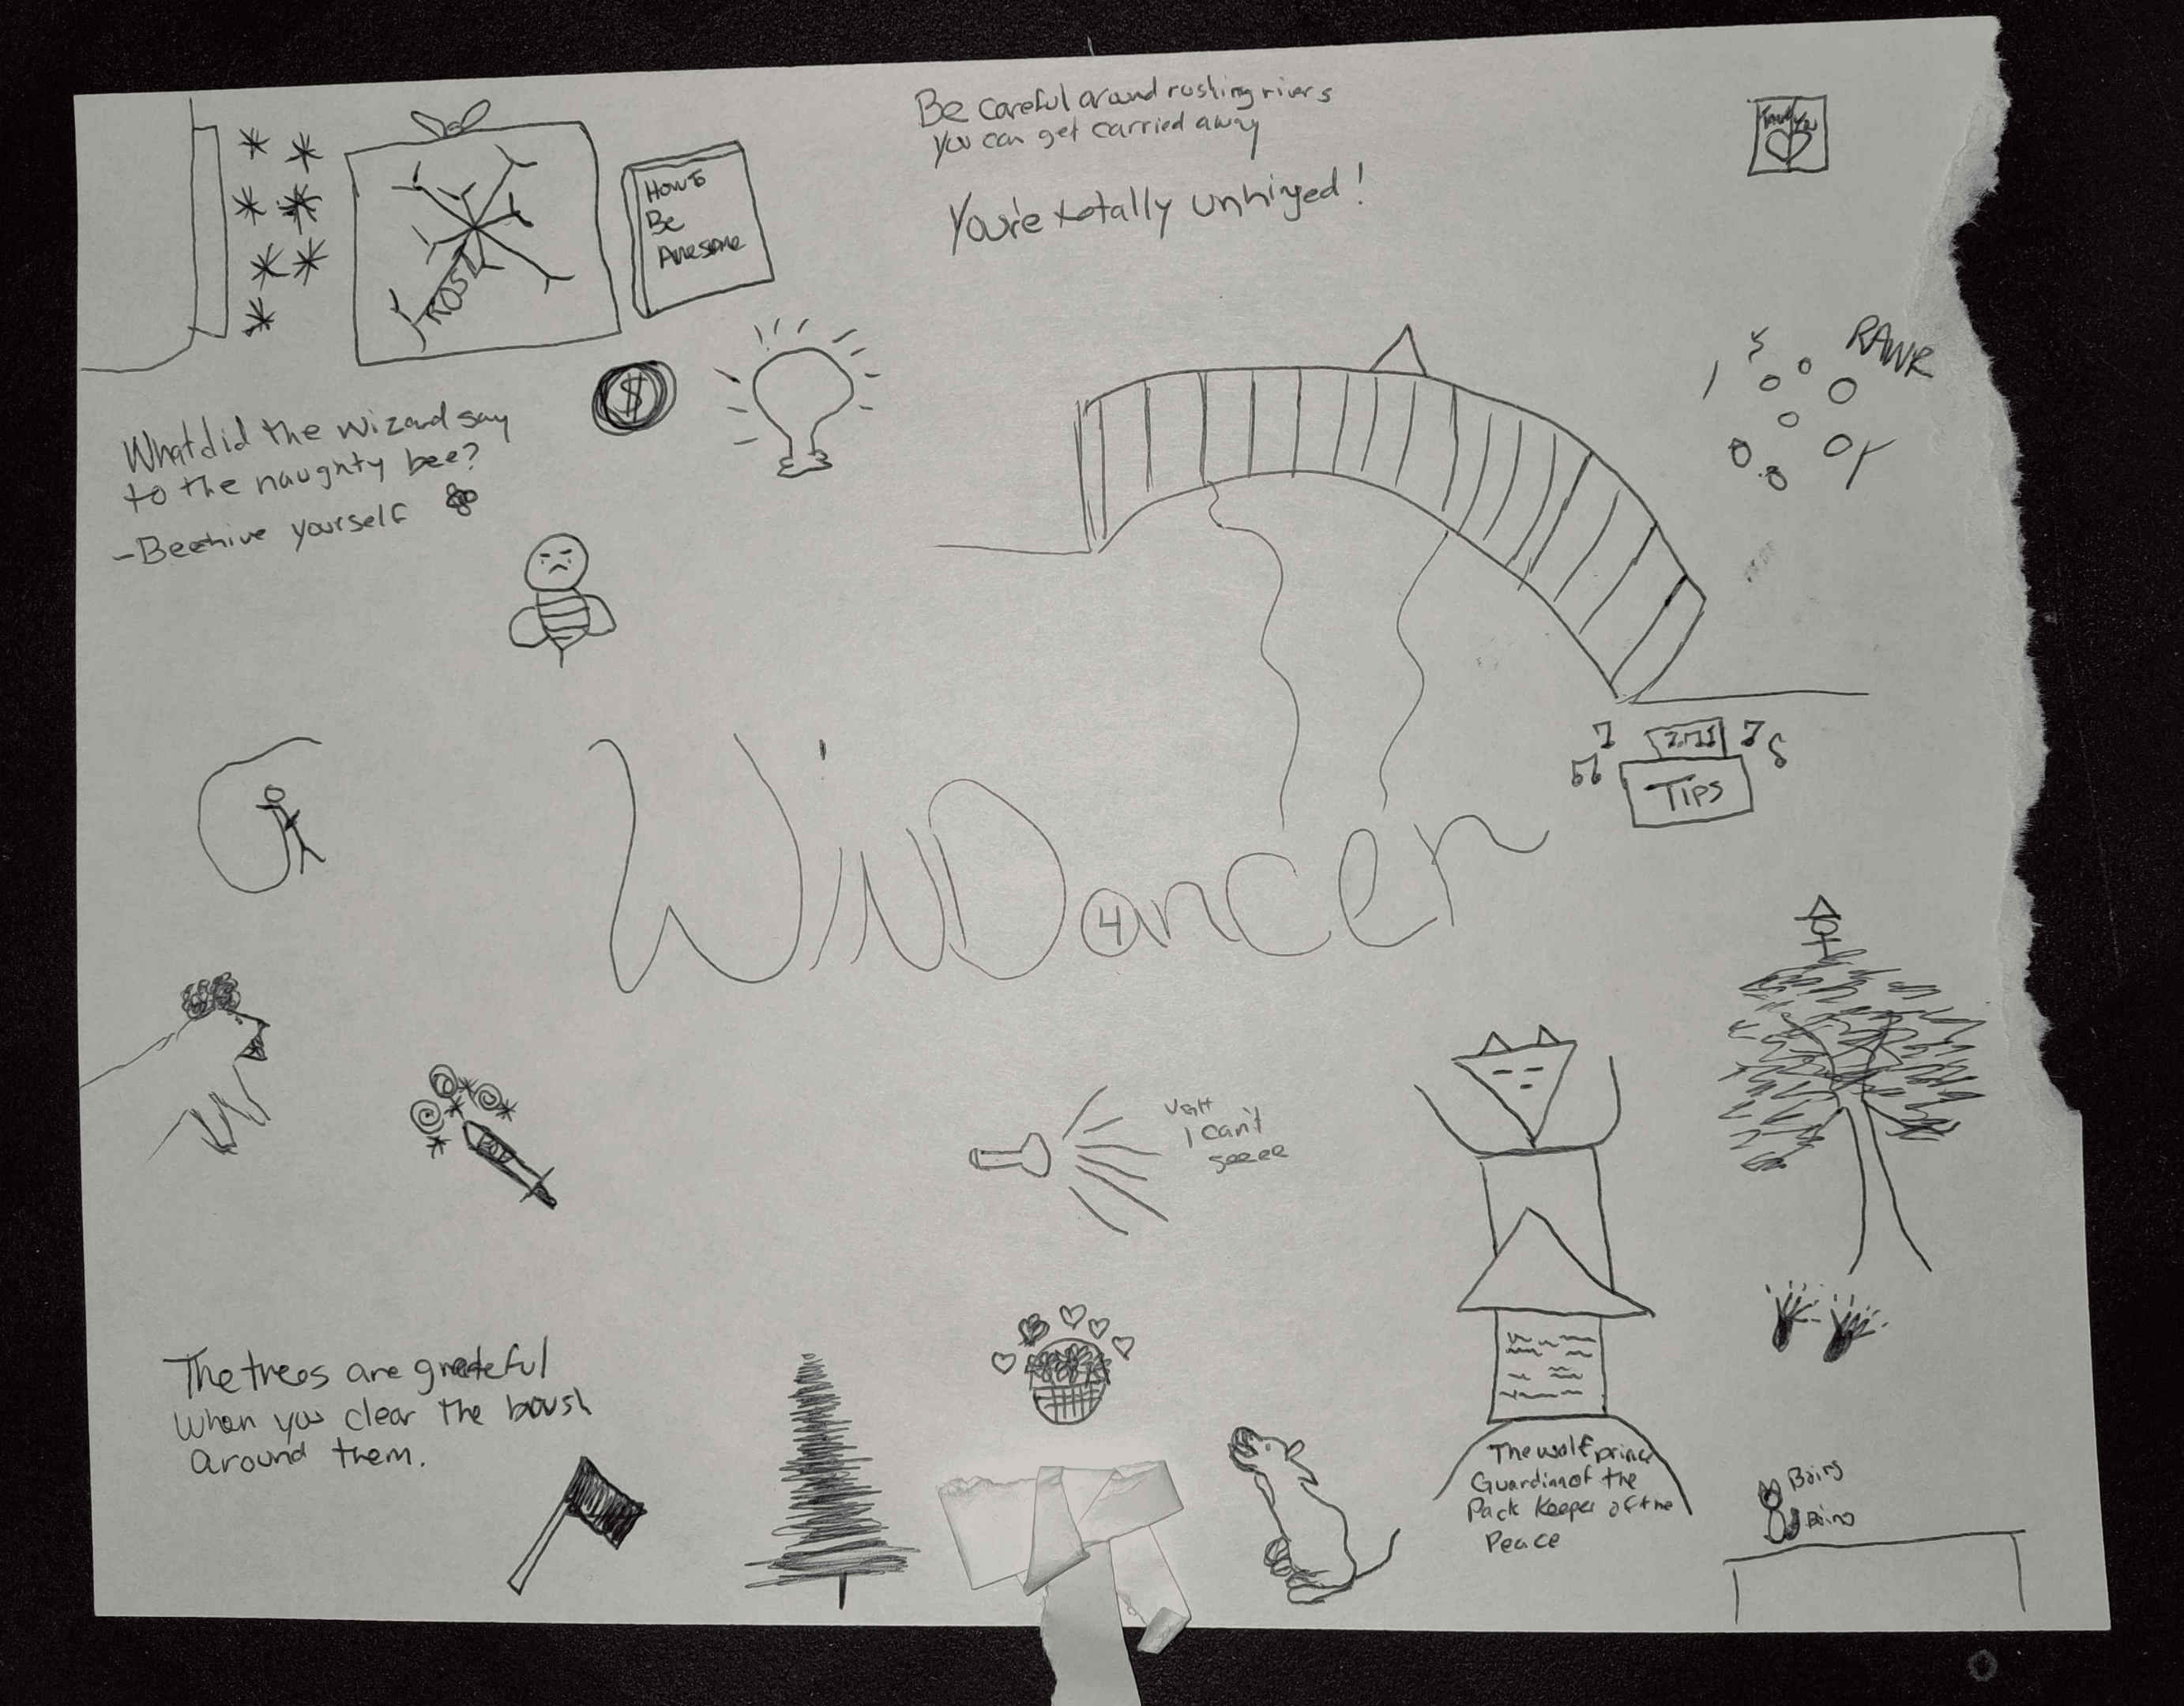 Be careful around rushing rivers
You can get carried away
You're totally unhinged!
Thank You
How To
Be
Awesome
FROST
$
RAWR
What did the wizard say
to the naughty bee?
-Beehive yourself
Tips
WinDancer
4
I can't
seeee
The trees are grateful
when you clear the brush
Around them.
The wolf prince
Guardian of the
Pack Keeper of the
Peace
Boing
Boing